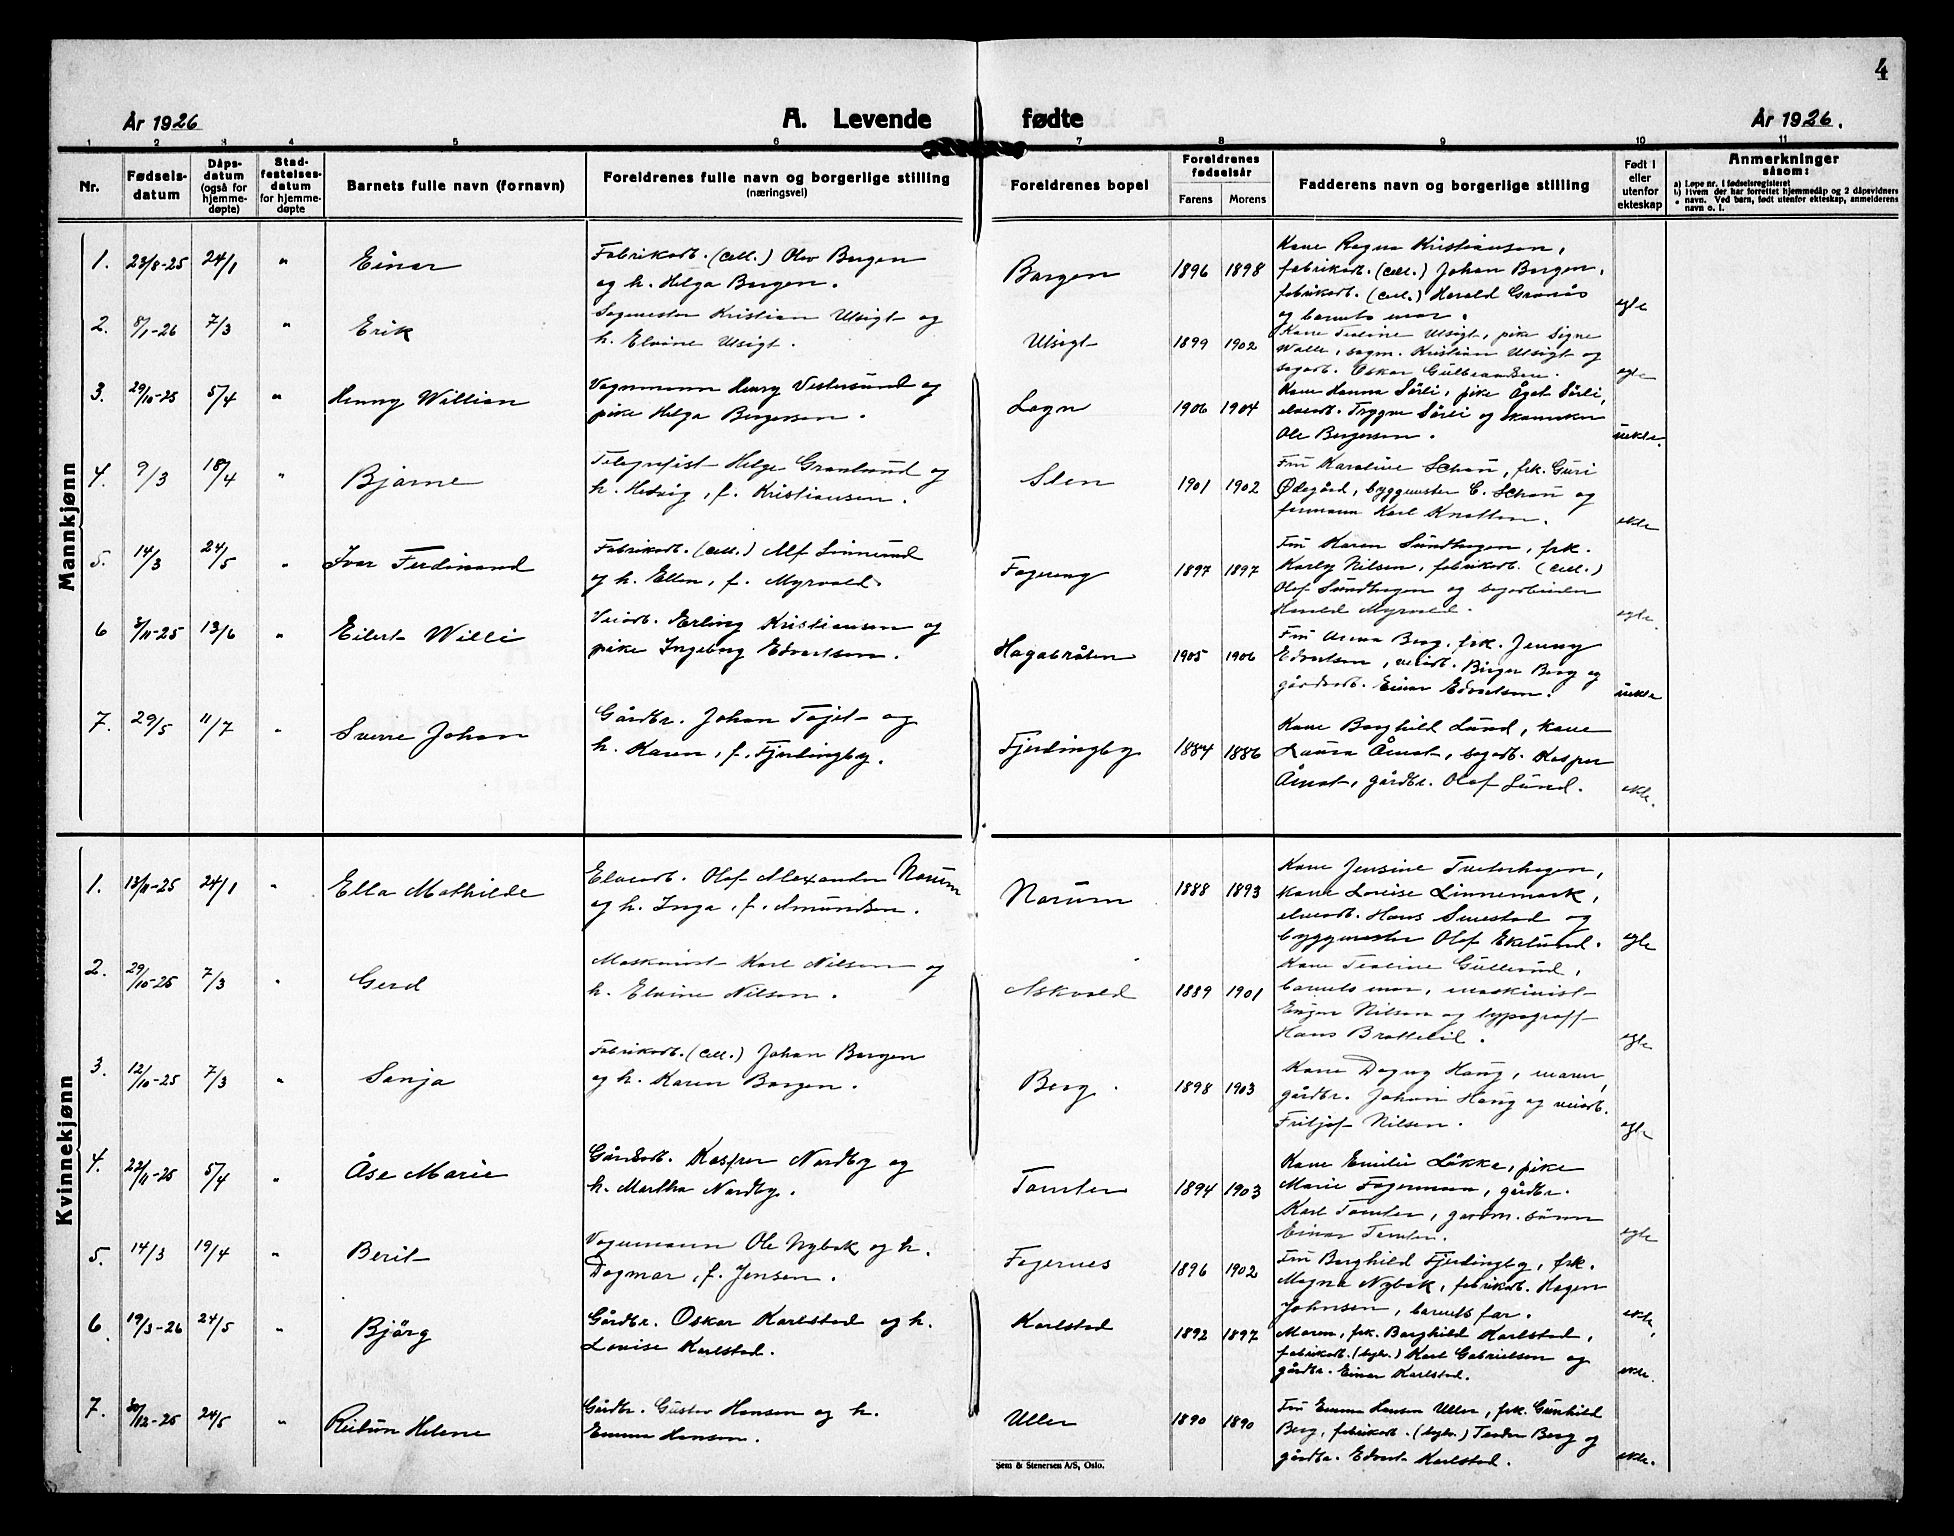 4
År 1926
A. Levende fødte
År 1926.
1 2 3 4 5 6 7 8 9 10 11
Nr.
Fødsels-
datum
Dåps-
datum
(også for
hjemme-
døpte)
Stad-
festelses-
datum
for hjemme-
døpte
Barnets fulle navn (fornavn)
Foreldrenes fulle navn og borgerlige stilling
(næringsvei)
Foreldrenes bopel
Foreldrenes
fødselsår
Farens Morens
Fadderens navn og borgerlige stilling
Født i
eller
utenfor
ekteskap
Anmerkninger
såsom:
a) Løpe nr. i fødselsregisteret
b) Hvem der har forrettet hjemmedåp og 2 dåpsvidners
navn. Ved barn, født utenfor ekteskap, anmelderens
navn o. l.
Mannkjønn
1. 23/8-25 24/1 " Einar
Fabrikarb. (Cell.) Olav Borgen
og h. Helga Borgen.
Borgen 1896 1898
Kone Ragna Kristiansen,
fabrikarb. (Cell.) Johan Borgen,
fabrikarb. (Cell.) Harald Granås
og barnets mor.
egte
2. 8/1-26 7/3 " Erik
Sagmester Kristian Utsigt og
h. Elvine Utsigt.
Utsigt 1899 1902
Kone Teoline Utsigt, pike Signe
Walle, sagm. Kristian Utsigt og
sagarb. Oskar Gulbrandsen.
egte
3. 29/10-25 5/4 " Henry Willian
Vognmann Henry Vestersund og
pike Helga Bergersen.
Logn 1906 1904
Kone Hanna Sørli, pike Ågot Sørli,
elvearb. Trygve Sørli og skomaker
Ole Bergersen.
uekte.
4. 9/3 18/4 " Bjarne
Telegrafist Helge Granlund og
h. Hedvig, f. Kristiansen.
Sten 1901 1902
Fru Karoline Schou, frk. Guri
Ødegård, byggmester C. Schou og
formann Karl Knatten.
ekte
5. 14/3 24/5 " Ivar Ferdinand
Fabrikarb. (Cell.) Alf Linnerud
og h. Ellen, f. Myrvold.
Fagereng 1897 1897
Fru Karen Sundhagen, frk.
Karly Nilsen, fabrikarb. (Cell.)
Olaf Sundhagen og sagarbeider
Harald Myrvold.
egte.
6 3/11-25 13/6 " Eilert Willi
Veiarb. Erling Kristiansen og
pike Ingeborg Edvartsen.
Hagabråten 1905 1906
Fru Anna Berg, frk. Jenny
Edvartsen, veiarb. Birger Berg og
gårdsarb. Einar Edvartsen.
uekte
7. 29/5 11/7 " Sverre Johan
Gårdbr. Johan Tajet og
h. Karen, f. Fjerdingby.
Fjerdingby 1884 1886
Kone Borghild Lund, kone
Laura Åmot, sagarb. Kasper
Åmot, gårdbr. Olaf Lund.
ekte.
Kvinnekjønn
1. 13/11-25 24/1 " Ella Mathilde
Elvearb. Olaf Alexander Norum
og h. Inga, f. Amundsen.
Norum 1888 1893
Kone Jensine Tveterhagen,
kone Lovise Linnemark,
elvearb. Hans Smestad og
byggmester Olaf Ekelund.
egte
2. 29/10-25 7/3 " Gerd
Maskinist Karl Nilsen og
h. Elvine Nilsen.
Askvold 1889 1901
Kone Teoline Gullerud,
barnets mor, maskinist
Nilsen og typograff
Hans Bratteli.
egte
3. 12/10-25 7/3 " Sonja
Fabrikarb. (Cell.) Johan Borgen
og h. Karen Borgen.
Berg. 1898 1903
Kone Dagny Haug, moren,
gårdbr. Johan Haug og veiarb.
Fritjof Nilsen.
egte
4. 22/11-25 5/4 " Åse Marie
Gårdsarb. Kasper Nordby og
h. Martha Nordby.
Tomter 1894 1903
Kone Emilie Løkka, pike
Marie Fagermoen, gårdbr.
Karl Tomter, gårdm. sønn
Einar Tomter.
egte
5. 14/3 19/4 " Berit
Vognmann Ole Nybak og h.
Dagmar, f. Jensen.
Fagernes 1896 1902
Fru Borghild Fjerdingby, frk.
Magna Nybak, fabrikarb. Hagen
Johnsen, barnets far.
ekte,
6 19/3-26 24/5 " Bjørg
Gårdbr. Oskar Karlstad og h.
Lovise Karlstad.
Karlstad 1892 1897
Moren, frk. Borghild Karlstad,
fabrikarb. Karl Gabrielsen og
gårdbr. Einar Karlstad.
ekte.
7. 30/12-25 24/5 " Reidun Helene
Gårdbr. Gustav Hansen og h.
Emma Hansen.
Uller 1890 1890
Fru Emma Hansen Uller, frk. Gunhild
Berg, fabrikarb. Teodor Berg og
gårdbr. Edvart Karlstad.
ekte.
Sem & Stenersen A/S, Oslo.